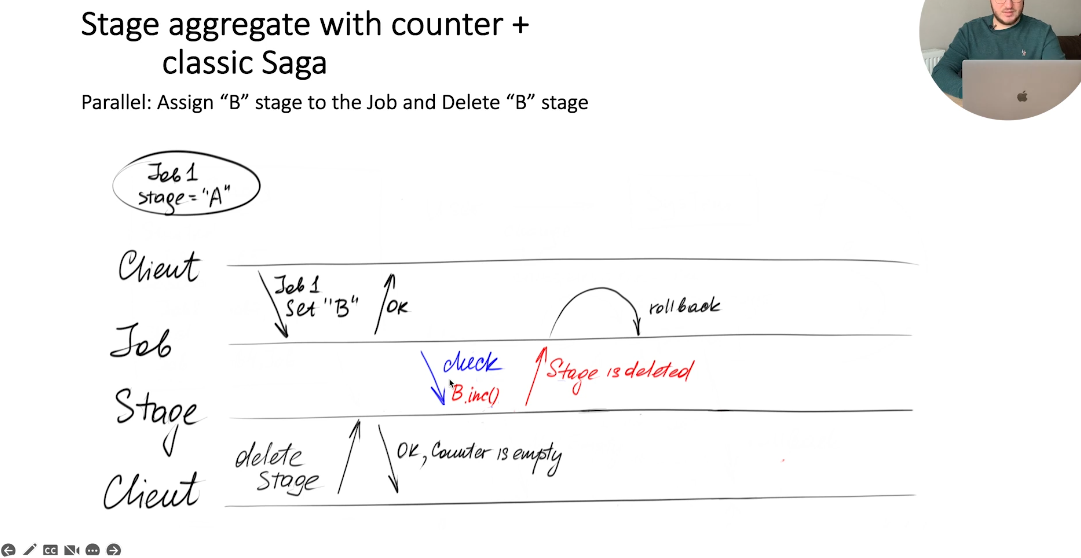 Stage aggregate with counter +
classic Saga
Parallel: Assign “B” stage to the Job and Delete “B” stage
Job 1
stage = "A"
Client
Job 1
Set "B"
OK
rollback
Job
check
B.inc()
Stage is deleted
Stage
delete
stage
OK, Counter is empty
Client
CC